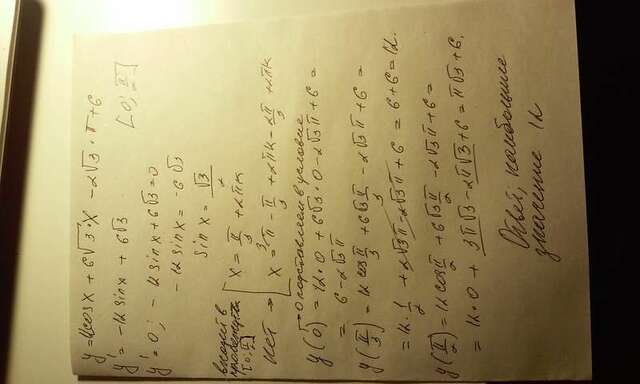 y = 12cosx + 6√3·x - 2√3·π + 6
y' = -12 sinx + 6√3
[0; π/2]
y' = 0; - 12sinx + 6√3 = 0
- 12sinx = -6√3
sin x = √3/2
входит в
промежуток
[0; π/2]
x = π/3 + 2πk
нет → x = π - π/3 + 2πk = 2π/3 + 2πk
0 подставляем в условие
y(0) = 12·0 + 6√3·0 - 2√3π + 6 =
= 6 - 2√3π
y(π/3) = 12 cos π/3 + 6√3 π/3 - 2√3π + 6 =
= 12·1/2 + 2√3π - 2√3π + 6 = 6 + 6 = 12.
y(π/2) = 12 cos π/2 + 6√3 π/2 - 2√3π + 6 =
= 12·0 + 3π√3 - 2π√3 + 6 = π√3 + 6.
Ответ; наибольшие
значение 12